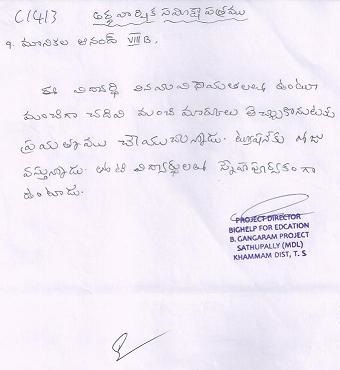 C/4/3 అర్థ వార్షిక సమీక్షా పత్రము
౧. మూనికల ఆనంద్ VIII B.
ఈ విద్యార్థి వినయ విధేయతలతో ఉంటూ
మంచిగా చదివి మంచి మార్కులు తెచ్చుకొనుటకు
ప్రయత్నము చేయుచున్నాడు. ట్యూషన్‌కు రోజు
వస్తున్నాడు. తోటి విద్యార్థులతో స్నేహపూర్వకంగా
ఉంటాడు.
PROJECT DIRECTOR
BIGHELP FOR EDCATION
B. GANGARAM PROJECT
SATHUPALLY (MDL)
KHAMMAM DIST, T. S